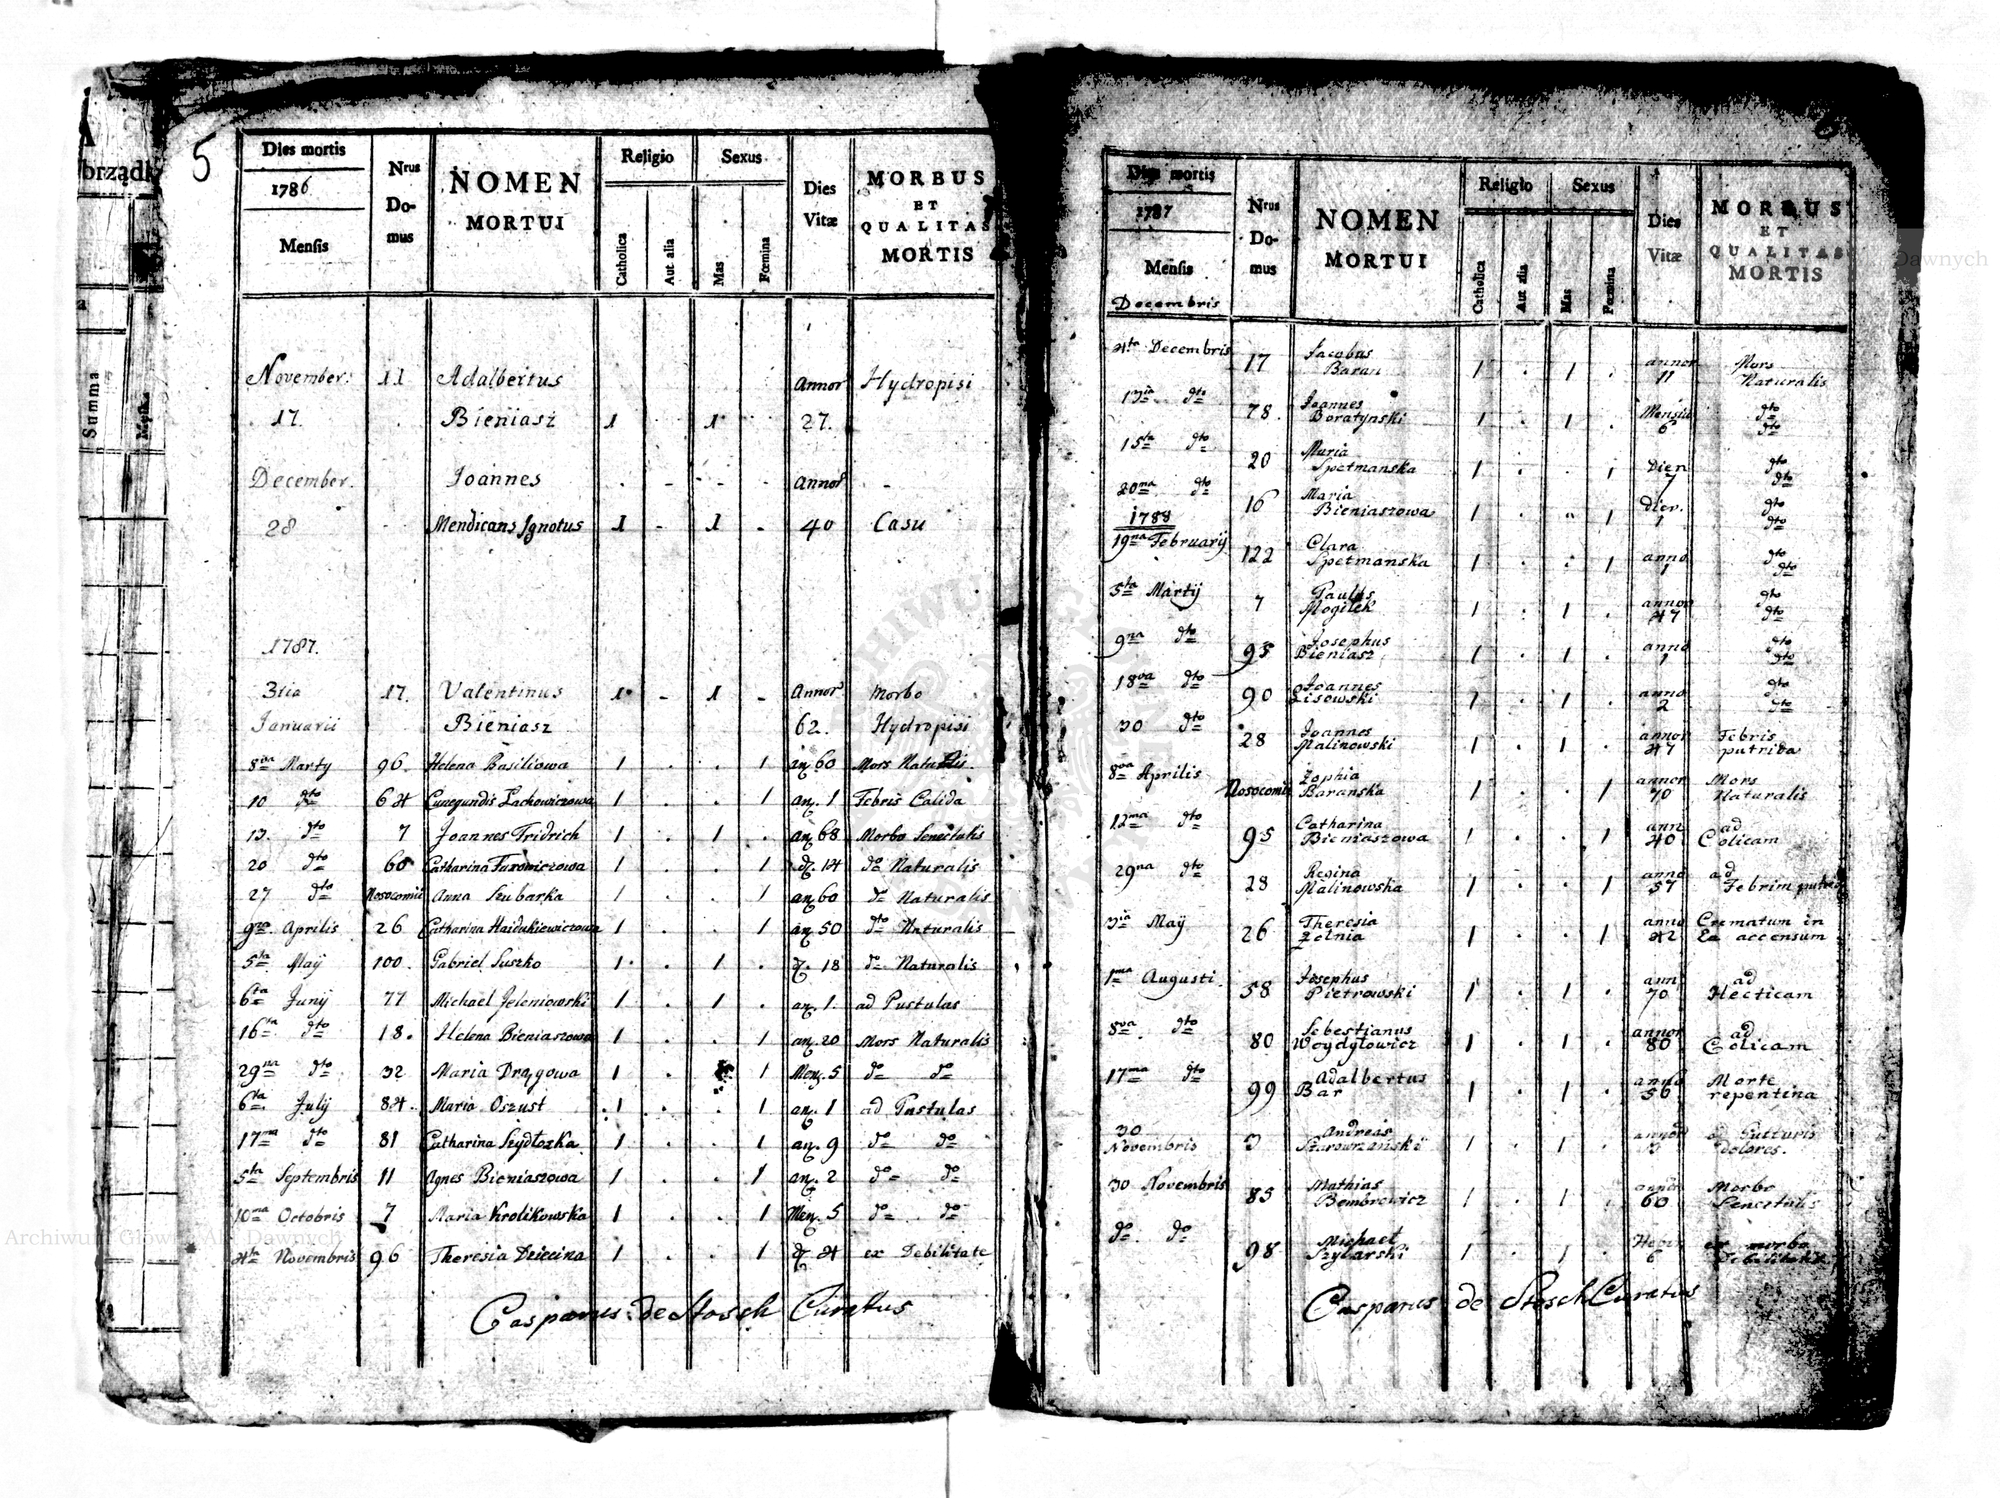 5
Dies mortis
1786
Mensis
Nrus Do-mus
NOMEN MORTUI
Religio
Catholica
Aut alia
Sexus
Mas
Fœmina
Dies Vitæ
MORBUS ET QUALITAS MORTIS
November. 11 Adalbertus Annor Hydropisi
17. Bieniasz 1 1 27.
December. Joannes Annor
28 Mendicans Ignotus 1 - 1 - 40 Casu
1787.
3tia 17. Valentinus 1 - 1 - Annor Morbo
Januarii Bieniasz 62. Hydropisi
8va Marty 96 Helena Basiliowa 1 . . 1 an. 60 Mors Naturalis
10 dto 64 Cunegundis Lachowiczowa 1 . . 1 an. 1 Febris Calida
13. dto 7 Joannes Fridrich 1 . 1 . an. 68 Morbo Senectutis
20 dto 60 Catharina Turowiczowa 1 . . 1 d. 14 do Naturalis
27 dto Nosocomii Anna Szubarka 1 . . 1 an. 60 do Naturalis
9na Aprilis 26 Catharina Haidukiewiczowa 1 . . 1 an. 50 dto Naturalis
5ta Maij 100. Gabriel Suszko 1 . 1 . d. 18 do Naturalis
6ta Junij 77 Michael Jeleniowski 1 . 1 . an. 1. ad Pustulas
16ta dto 18. Helena Bieniaszowa 1 . . 1 an. 20 Mors Naturalis
29na dto 32 Maria Drągowa 1 . 1 Men. 5 do do
6ta Julij 84. Maria Oszust 1 . . 1 an. 1 ad Pustulas
17ma dto 81 Catharina Szydłoska 1 . . 1 an. 9 do do
5ta Septembris 11 Agnes Bieniaszowa 1 . . 1 an. 2 do do
10ma Octobris 7 Maria Krolikowska 1 . . 1 Men. 5 do do
4ta Novembris 96 Theresia Dziecina 1 . . 1 d. 4 ex Debilitate
Casparus de Stosch Curatus
Dies mortis
1787
Mensis
Decembris
Nrus Do-mus
NOMEN MORTUI
Religio
Catholica
Aut alia
Sexus
Mas
Fœmina
Dies Vitæ
MORBUS ET QUALITAS MORTIS
4ta Decembris 17 Jacobus Baran 1 . 1 . annor 11 Mors Naturalis
13ia dto 78. Joannes Boratynski 1 . 1 . Mensiu 6 dto dto
15ta dto 20 Maria Spetmanska 1 . . 1 Dier 7 dto dto
20ma dto 16 Maria Bieniaszowa 1 . . 1 dier. 1 dto dto
1788
19na Februarij 122 Clara Spetmanska 1 . . 1 anno 1 dto dto
5ta Martij 7 Paulus Mogilek 1 . 1 . annor 47 dto dto
9na dto 95 Josephus Bieniasz 1 . 1 . anno 1 dto dto
18va dto 90 Joannes Lisowski 1 . 1 . anno 2 dto dto
30 dto 28 Joannes Malinowski 1 . 1 . annor 47 Febris putrida
8va Aprilis Nosocomii Zophia Baranska 1 . . 1 annor 70 Mors Naturalis
12ma dto 95 Catharina Bieniaszowa 1 . . 1 ann 40 ad Colicam
29na dto 28 Regina Malinowska 1 . . 1 anno 57 ad Febrim putrid
3ia Maij 26 Theresia Zelnia 1 . . 1 anno 42 Crematum in Ea accensum
1ma Augusti. 58 Josephus Pietrowski 1 . 1 . ann 70 ad Hecticam
8va dto 80 Sebestianus Woydylowicz 1 . 1 . annor 80 ad Colicam
17ma dto 99 Adalbertus Bar 1 . 1 . anno 56 Morte repentina
30 Novembris 3 Andreas 1 . 1 . Gutturis dolores.
30 Novembris 85 Mathias Bembrewicz 1 . 1 . 60 Morbo Senectutis
do do 98 Michael Szylarski 1 . 1 . 6 ex morbo Debilitatis
Casparus de Stosch Curatus
brządk
Summa
Archiwum Główne Akt Dawnych
Dawnych